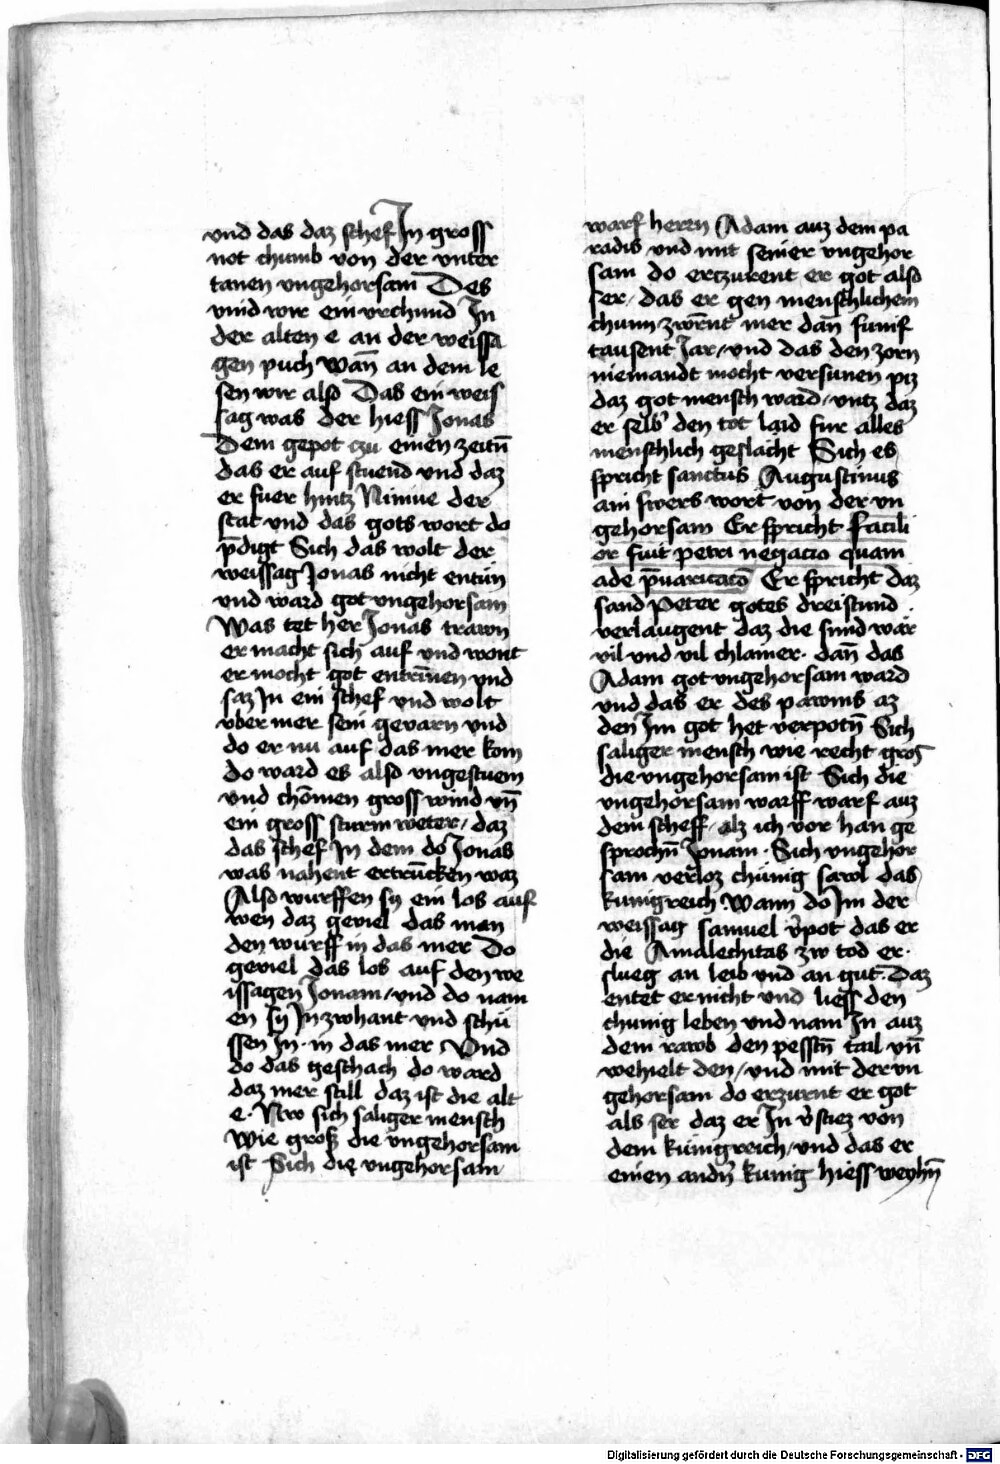 vnd das daz schef Jn gross
not chumb von der vnter
tanen vngehorsam Des
vind wir ein vrchund Jn
der alten e an der weissa
gen puch Wan̄ an dem le
sen wir also Das ein weis
sag was der hiess Jonas
Dem gepot czu einen zeitn̄
das er auf stuend vnd daz
er fuer hintz Niniue der
stat vnd das gots wort do
p̄digt Sich das wolt der
weissag Jonas nicht entun
vnd ward got vngehorsam
Was tet her Jonas trawn
er macht sich auf vnd wont
er mocht got entrīnen vnd
saz Jn ein schef vnd wolt
vber mer sein gevarn vnd
do er nu auf das mer kom
do ward es also vngestuem
vnd chōmen gross wind vn̄
ein gross sturm weter / daz
das schef Jn dem do Jonas
was nahent ertrūcken waz
Also wurffen sy ein los auf
wen daz geviel das man
den wurff in das mer Do
geviel das los auf den we
issagen Jonam / vnd do nam
en sy Jn zwhant vnd schu
ssen Jn · in das mer Vnd
do das geschach do ward
daz mer still daz ist die alt
e · Nw sich saliger mensch
Wie groß die vngehorsam
ist Sich die vngehorsam
warf herrn Adam auz dem pa
radis vnd mit seiner vngehor
sam do erczurent er got also
ser / das er gen menschlichem
chunn zwrnt mer dan̄ funf
tausent Jar / vnd das den zorn
niemandt mocht versunen piz
daz got mensch ward / vntz daz
er selb' den tot laid fur alles
menschlich geslacht Sich es
spricht sanctus Augustinus
ain swers wort von der vn
gehorsam Er spricht facili
or fuit petri negacio quam
ade p̄uaricacō Er spricht daz
sand Peter gotes dreistund
verlaugent daz die sund war
vil vnd vil chlainer · dan̄ das
Adam got vngehorsam ward
vnd das er des pawms az
den Jm got het verpotn̄ Sich
saliger mensch wie recht gros
die vngehorsam ist Sich die
vngehorsam warff warf auz
dem scheff / alz ich vor han ge
sprochn̄ Jonam · Sich vngehor
sam verloz chünig sawl das
kunigreich · Wann do Jm der
weissag samuel v'pot das er
die Amalechitas zw tod er ·
slueg an leib vnd an gut · Daz
entet er nicht vnd liess den
chunig leben vnd nam Jn auz
dem rawb den pesstn̄ tail vn̄
wehielt den / vnd mit der vn
gehorsam do erzurnt er got
als ser daz er Jn v'stiez von
dem künigreich / vnd das er
einen andn̄ kunig hiess weyhn̄
Digitalisierung gefördert durch die Deutsche Forschungsgemeinschaft - DFG